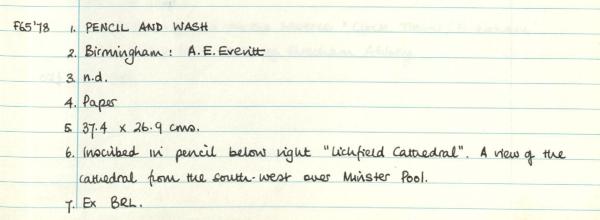 F65'78 1. PENCIL AND WASH
2. Birmingham: A.E. Everitt
3. n.d.
4. Paper
5. 37.4 x 26.9 cms.
6. Inscribed in pencil below right "Lichfield Cathedral". A view of the
cathedral from the south-west over Minster Pool.
7. Ex BRL.